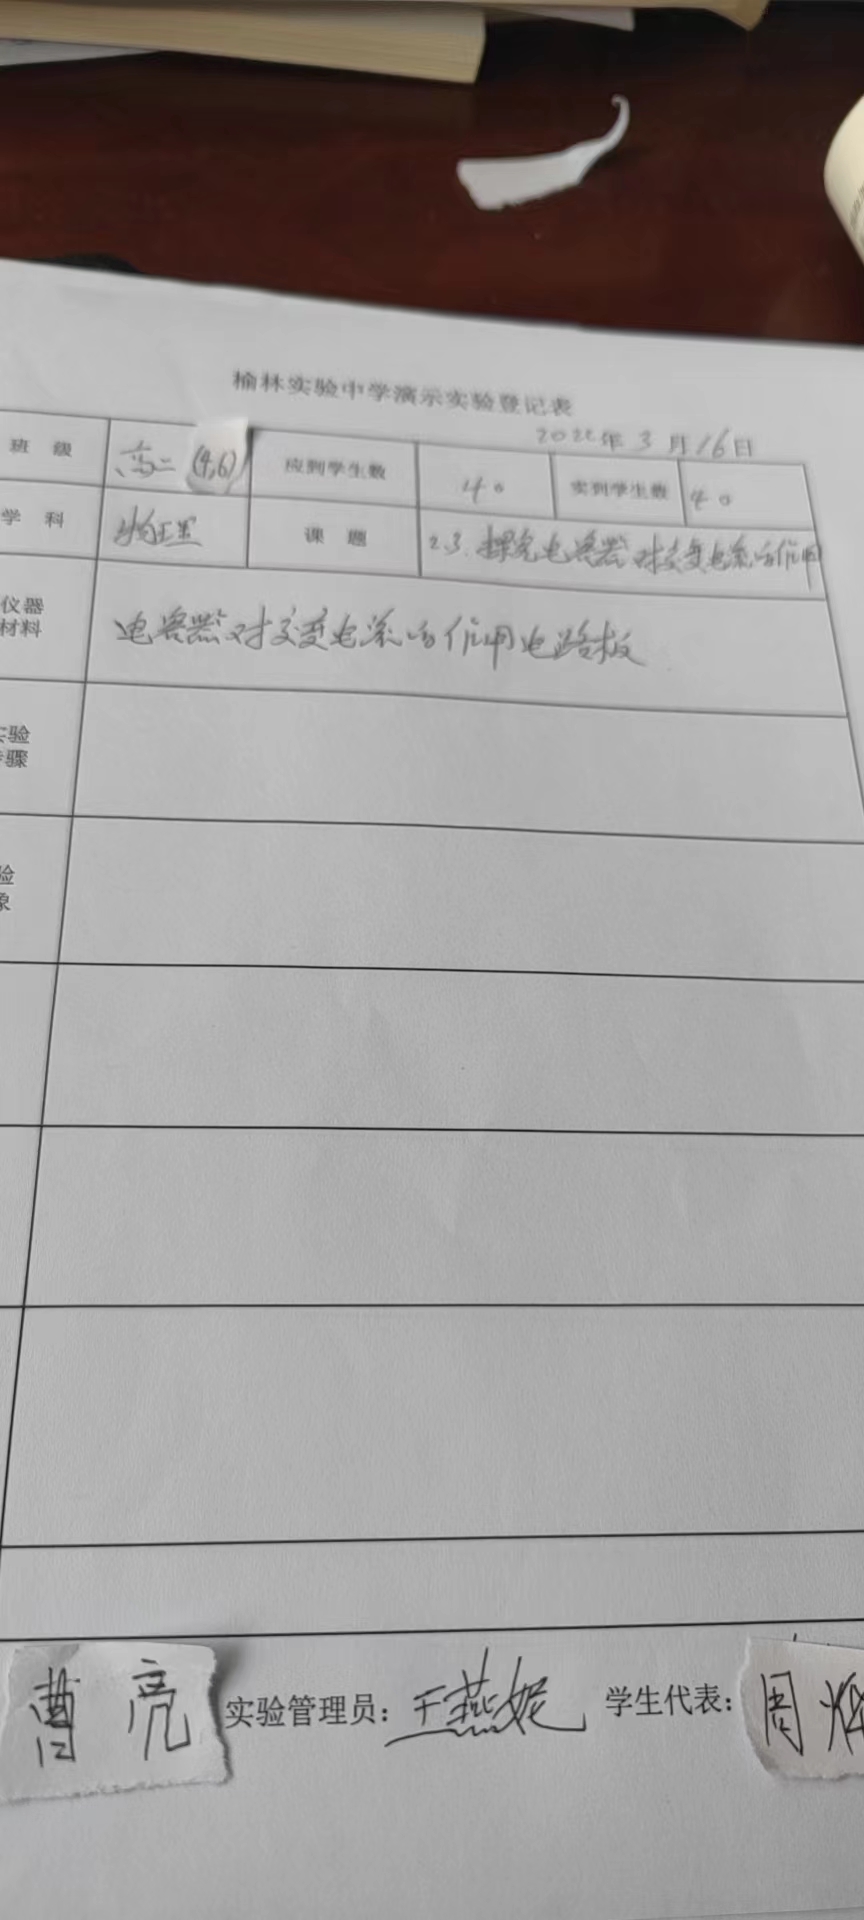 榆林实验中学演示实验登记表
2022年3月16日
班 级 高二 (4,6) 应到学生数 40 实到学生数 40
学 科 物理 课 题 2.3.探究电容器对交变电流的作用
仪器
材料
电容器对交变电流的作用电路板
实验
步骤
验
象
曹亮 实验管理员: 王燕妮 学生代表: 周